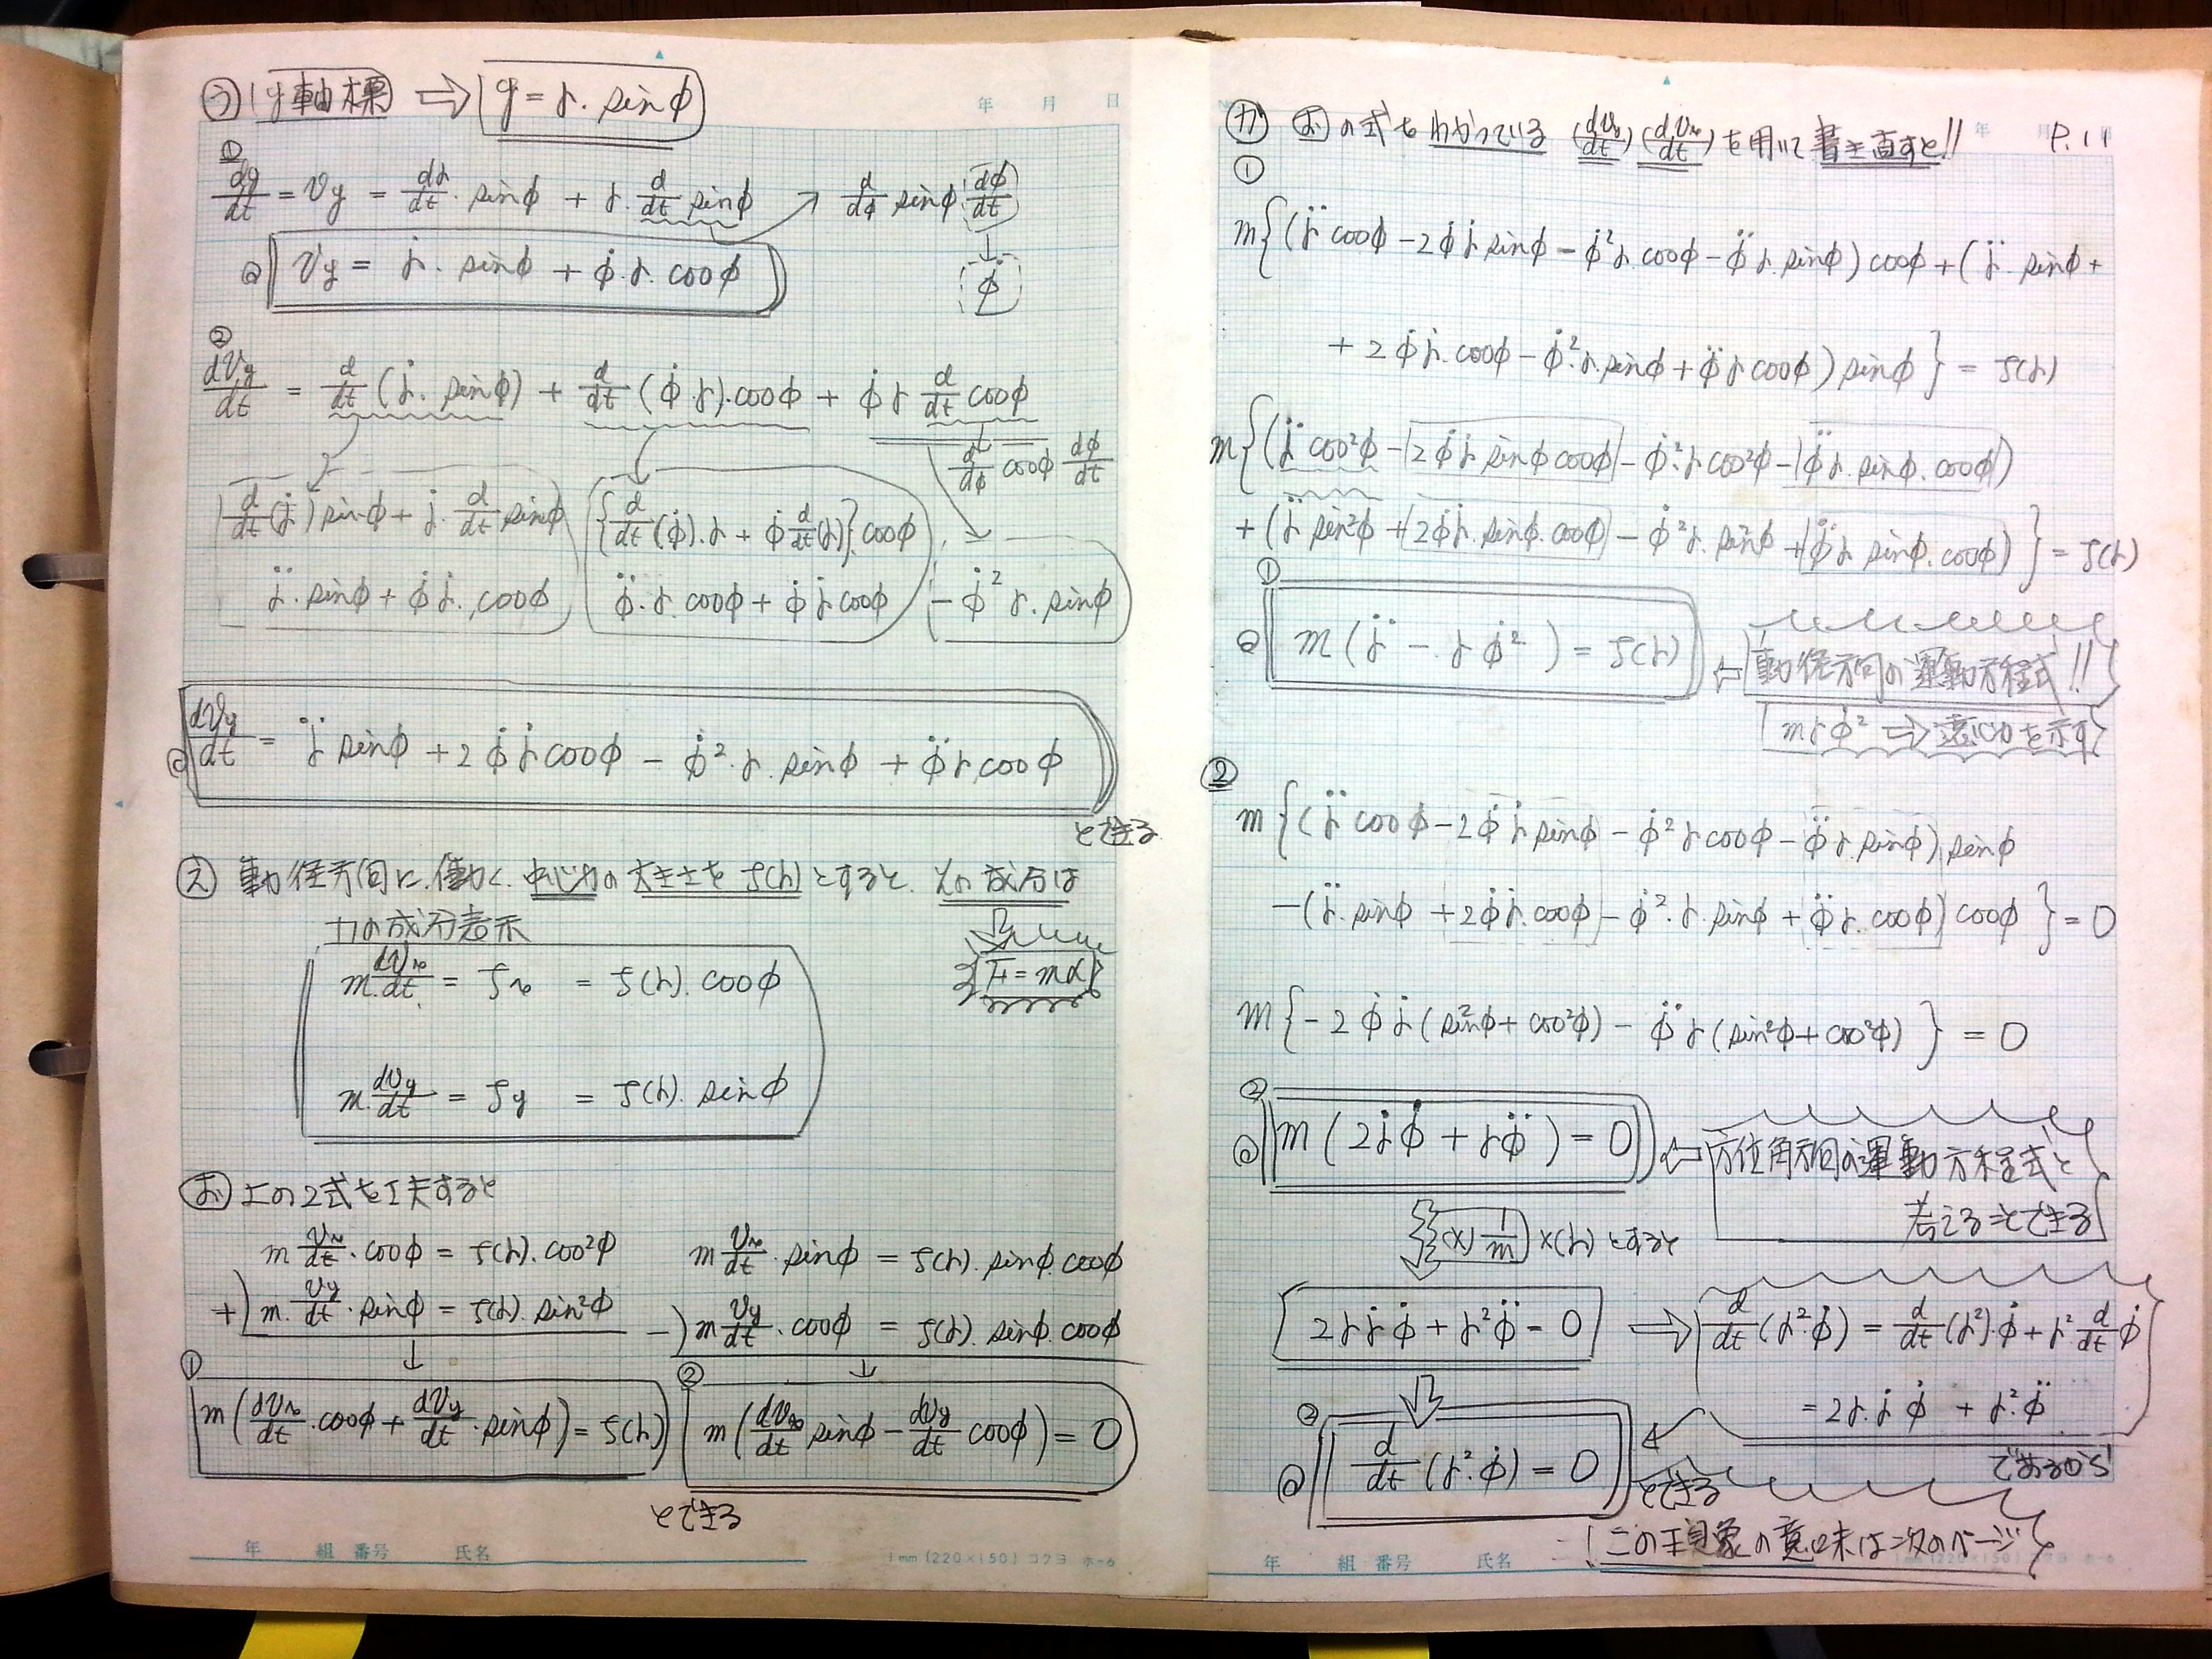 う y軸標 ⇒ y = r・sinφ
①
dy/dt = Vy = dr/dt・sinφ + r・d/dt sinφ → d/dφ sinφ・dφ/dt
↓
◎ Vy = ṙ・sinφ + φ̇・r・cosφ φ̇
②
dVy/dt = d/dt(ṙ・sinφ) + d/dt(φ̇・r)・cosφ + φ̇ r d/dt cosφ
d/dφ cosφ dφ/dt
d/dt(ṙ)sinφ + ṙ・d/dt sinφ {d/dt(φ̇)・r + φ̇ d/dt(r)}cosφ
r̈・sinφ + φ̇ṙ・cosφ φ̈・r cosφ + φ̇ṙcosφ - φ̇² r・sinφ
◎ dVy/dt = r̈ sinφ + 2φ̇ṙcosφ - φ̇²・r・sinφ + φ̈r・cosφ
とできる
え 動径方向に働く中心力の大きさをf(r)とすると、その成分は
力の成分表示
F = mα
m・dVx/dt = fx = f(r)・cosφ
m・dVy/dt = fy = f(r)・sinφ
お 上の2式を工夫すると
m Vx/dt・cosφ = f(r)・cos²φ
+) m・Vy/dt・sinφ = f(r)・sin²φ
↓
① m(dVx/dt・cosφ + dVy/dt・sinφ) = f(r)
m Vx/dt・sinφ = f(r)・sinφ・cosφ
-) m Vy/dt・cosφ = f(r)・sinφ・cosφ
↓
② m(dVx/dt sinφ - dVy/dt cosφ) = 0
とできる
年 組 番号 氏名
1mm (220×150) コクヨ ホ-6
年 月 日
P.11
か おの式をわかっている (dVy/dt)(dVx/dt)を用いて書き直すと!!
①
m{(r̈ cosφ - 2φ̇ṙsinφ - φ̇²r・cosφ - φ̈r・sinφ)cosφ + (r̈・sinφ +
+ 2φ̇ṙ・cosφ - φ̇²・r・sinφ + φ̈rcosφ)sinφ} = f(r)
m{(r̈ cos²φ - 2φ̇ṙ sinφcosφ - φ̇²・rcos²φ - φ̈r・sinφ・cosφ)
+ (r̈ sin²φ + 2φ̇ṙ・sinφ・cosφ - φ̇²r・sin²φ + φ̈r sinφ・cosφ)} = f(r)
①
◎ m(r̈ - rφ̇²) = f(r) ⇐ 動径方向の運動方程式!!
mrφ̇² ⇒ 遠心力を示す
②
m{(r̈ cosφ - 2φ̇ṙsinφ - φ̇²rcosφ - φ̈r・sinφ)・sinφ
- (r̈・sinφ + 2φ̇ṙ・cosφ - φ̇²・r・sinφ + φ̈r・cosφ)cosφ} = 0
m{-2φ̇ṙ(sin²φ + cos²φ) - φ̈r(sin²φ + cos²φ)} = 0
②
◎ m(2ṙφ̇ + rφ̈) = 0 ⇐ 方位角方向の運動方程式と
考えることできる
(×)1/m ×(r)とすると
2rṙφ̇ + r²φ̈ = 0 ⇒ d/dt(r²・φ̇) = d/dt(r²)・φ̇ + r²・d/dt φ̇
= 2r・ṙφ̇ + r²・φ̈
であるから
②
◎ d/dt(r²・φ̇) = 0 とできる
この現象の意味は次のページ
年 組 番号 氏名